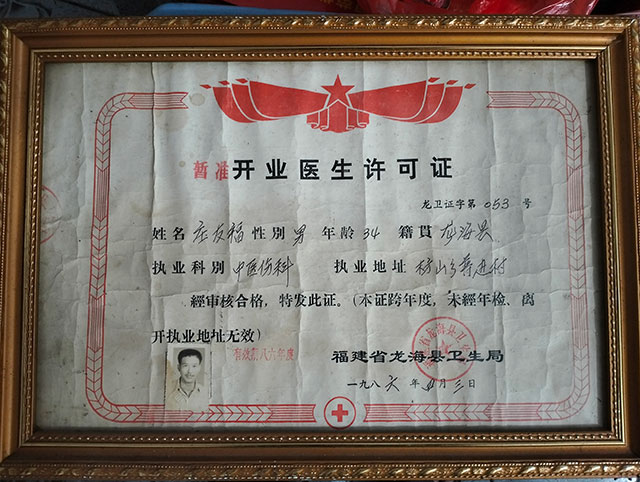 暂准开业医生许可证
龙卫证字第 053 号
姓名 友福 性别 男 年龄 34 籍貫 龙海县
执业科別 中医伤科 执业地址 村
經审核合格，特发此证。（本证跨年度，未經年检、离
开执业地址无效）
有效期八六年度
福建省龙海县卫生局
一九八六年 月三日